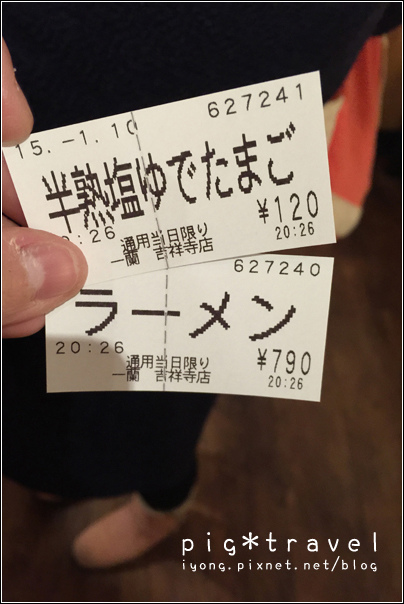 627241
15.-1.10
半熟塩ゆでたまご
¥120
20:26
20:26
通用当日限り
一蘭 吉祥寺店
627240
ラーメン
¥790
20:26
20:26
通用当日限り
一蘭 吉祥寺店
pig*travel
iyong.pixnet.net/blog